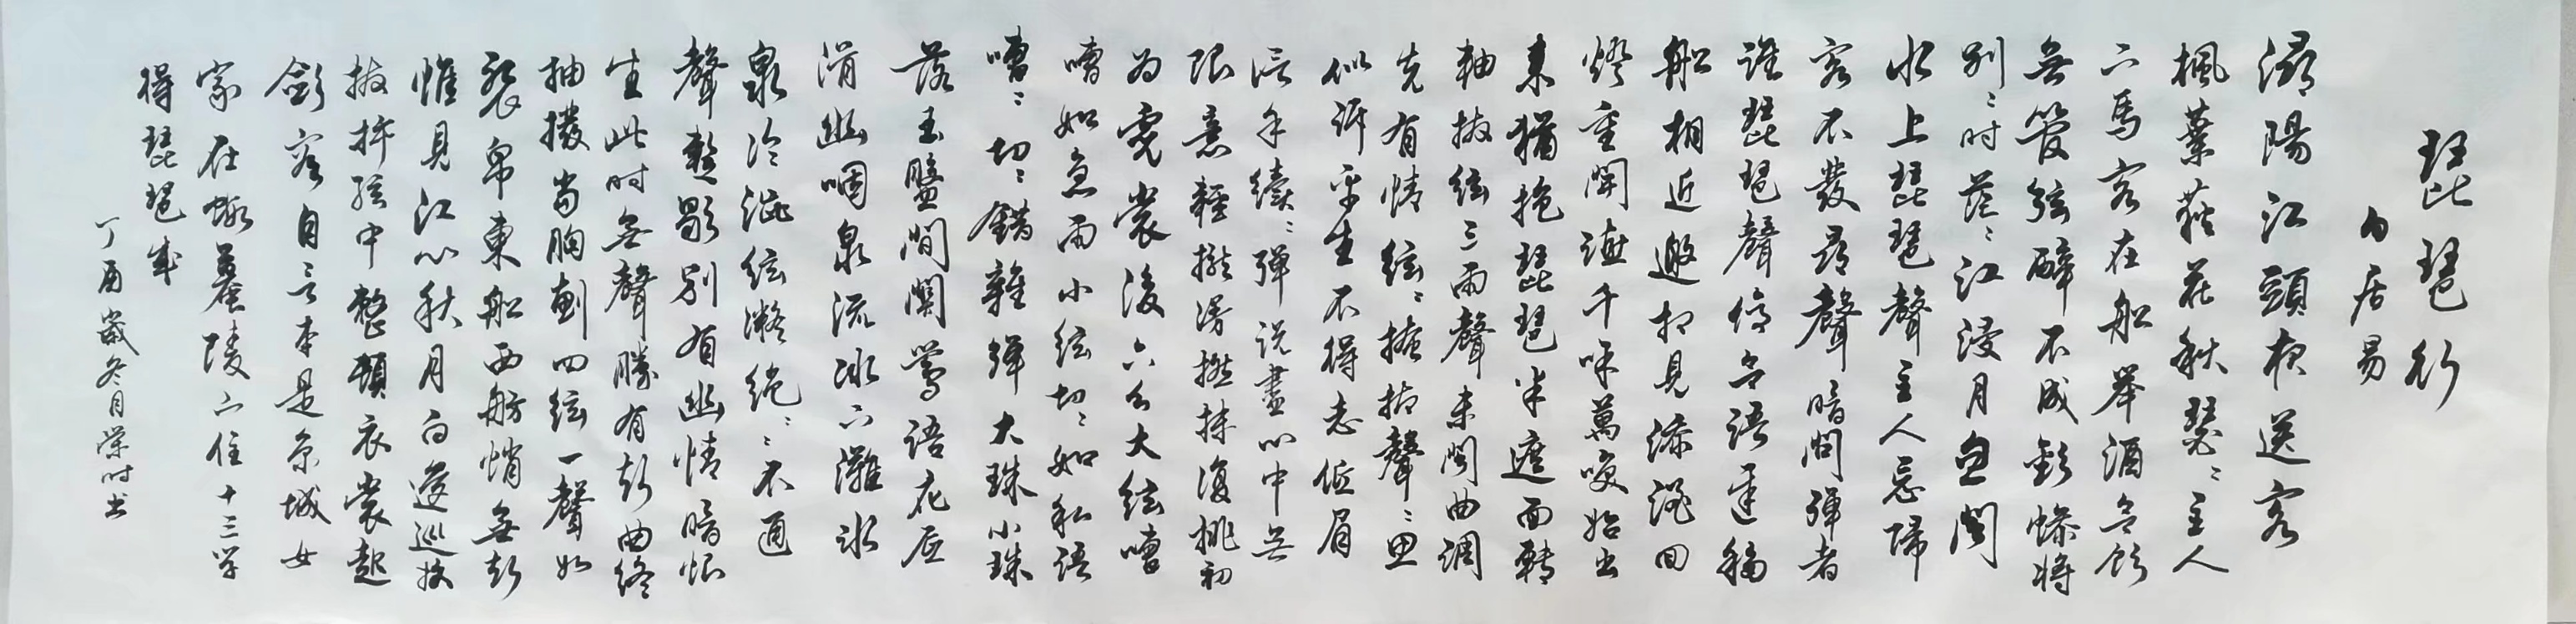 琵琶行
白居易
潯陽江頭夜送客
楓葉荻花秋瑟〻主人
下馬客在船舉酒欲飲
無管弦醉不成歡慘將
别〻时茫〻江浸月忽聞
水上琵琶聲主人忘歸
客不發尋聲暗問彈者
誰琵琶聲停欲語遲移
船相近邀相見添酒回
燈重開讌千呼萬喚始出
来猶抱琵琶半遮面轉
軸撥弦三兩聲未聞曲調
先有情弦〻掩抑聲〻思
似訴平生不得志低眉
信手續〻彈说盡心中無
限意輕攏慢撚抹復挑初
为霓裳後六幺大弦嘈
嘈如急雨小弦切〻如私語
嘈〻切〻錯雜彈大珠小珠
落玉盤間關鶯語花底
滑幽咽泉流冰下灘冰
泉冷澁弦凝絶〻〻不通
聲暫歇别有幽情暗恨
生此时無聲勝有聲曲終
抽撥當胸劃四弦一聲如
裂帛東船西舫悄無聲
惟見江心秋月白逡巡放
撥插弦中整頓衣裳起
斂容自言本是京城女
家在蝦蟇陵下住十三学
得琵琶成
丁酉歲冬月荣时书